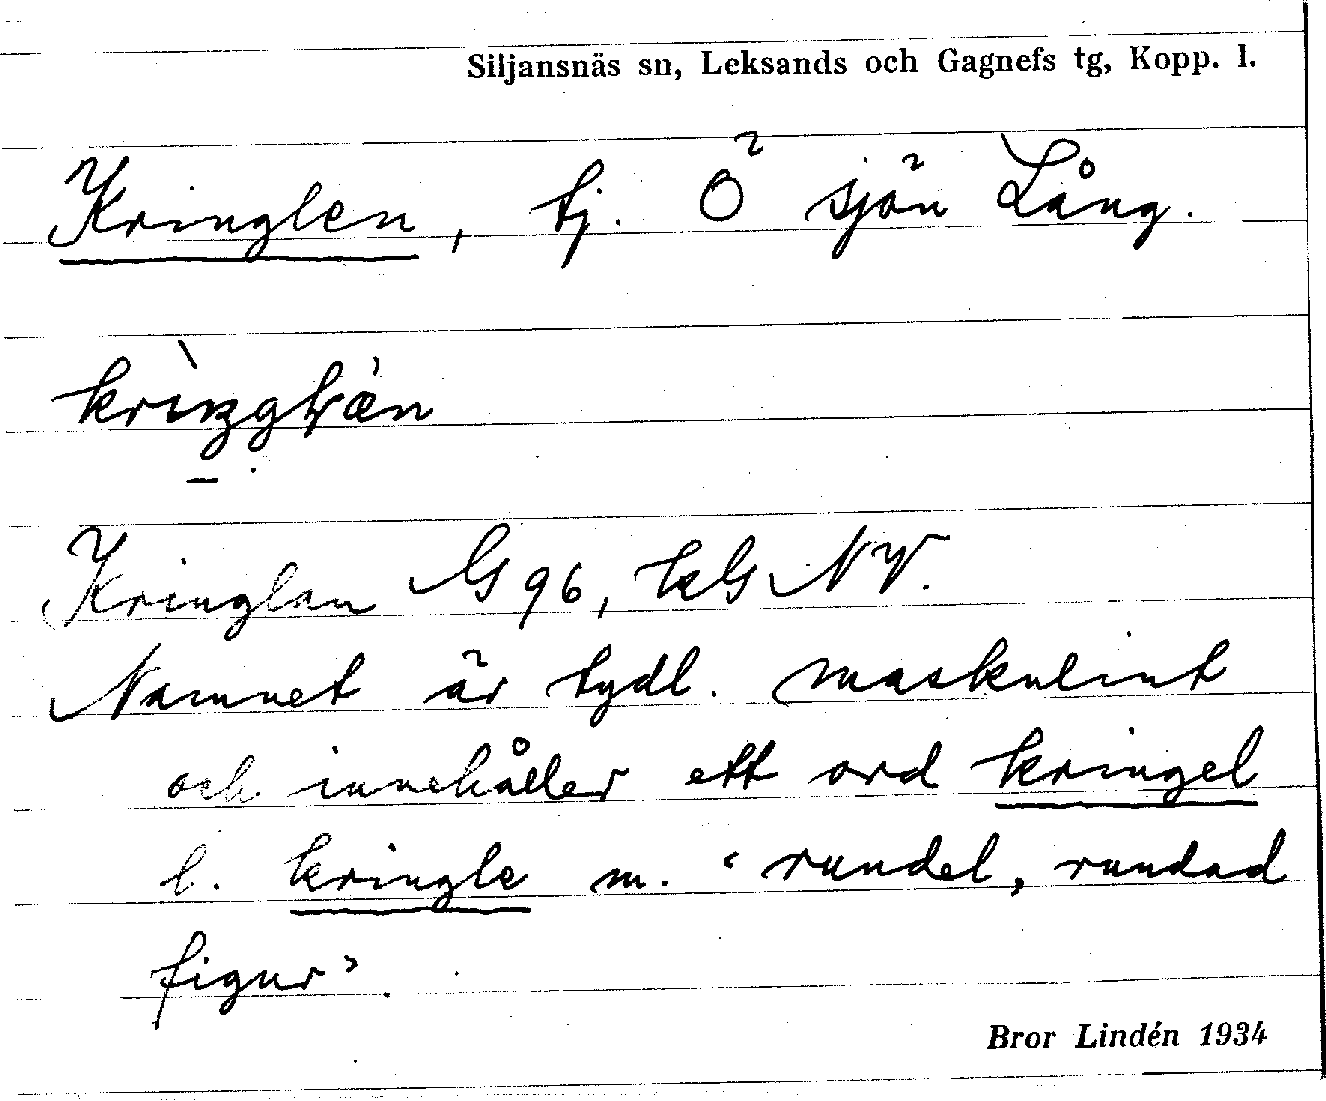 Siljansnäs sn, Leksands och Gagnefs tg, Kopp. l.
Kringlen, tj. Ö sjön Lång.
Kringlan G 96, kG NV.
Namnet är tydl. maskulint
och innehåller ett ord kringel
l. kringle m. ‘rundel, rundad
figur’.
Bror Lindén 1934